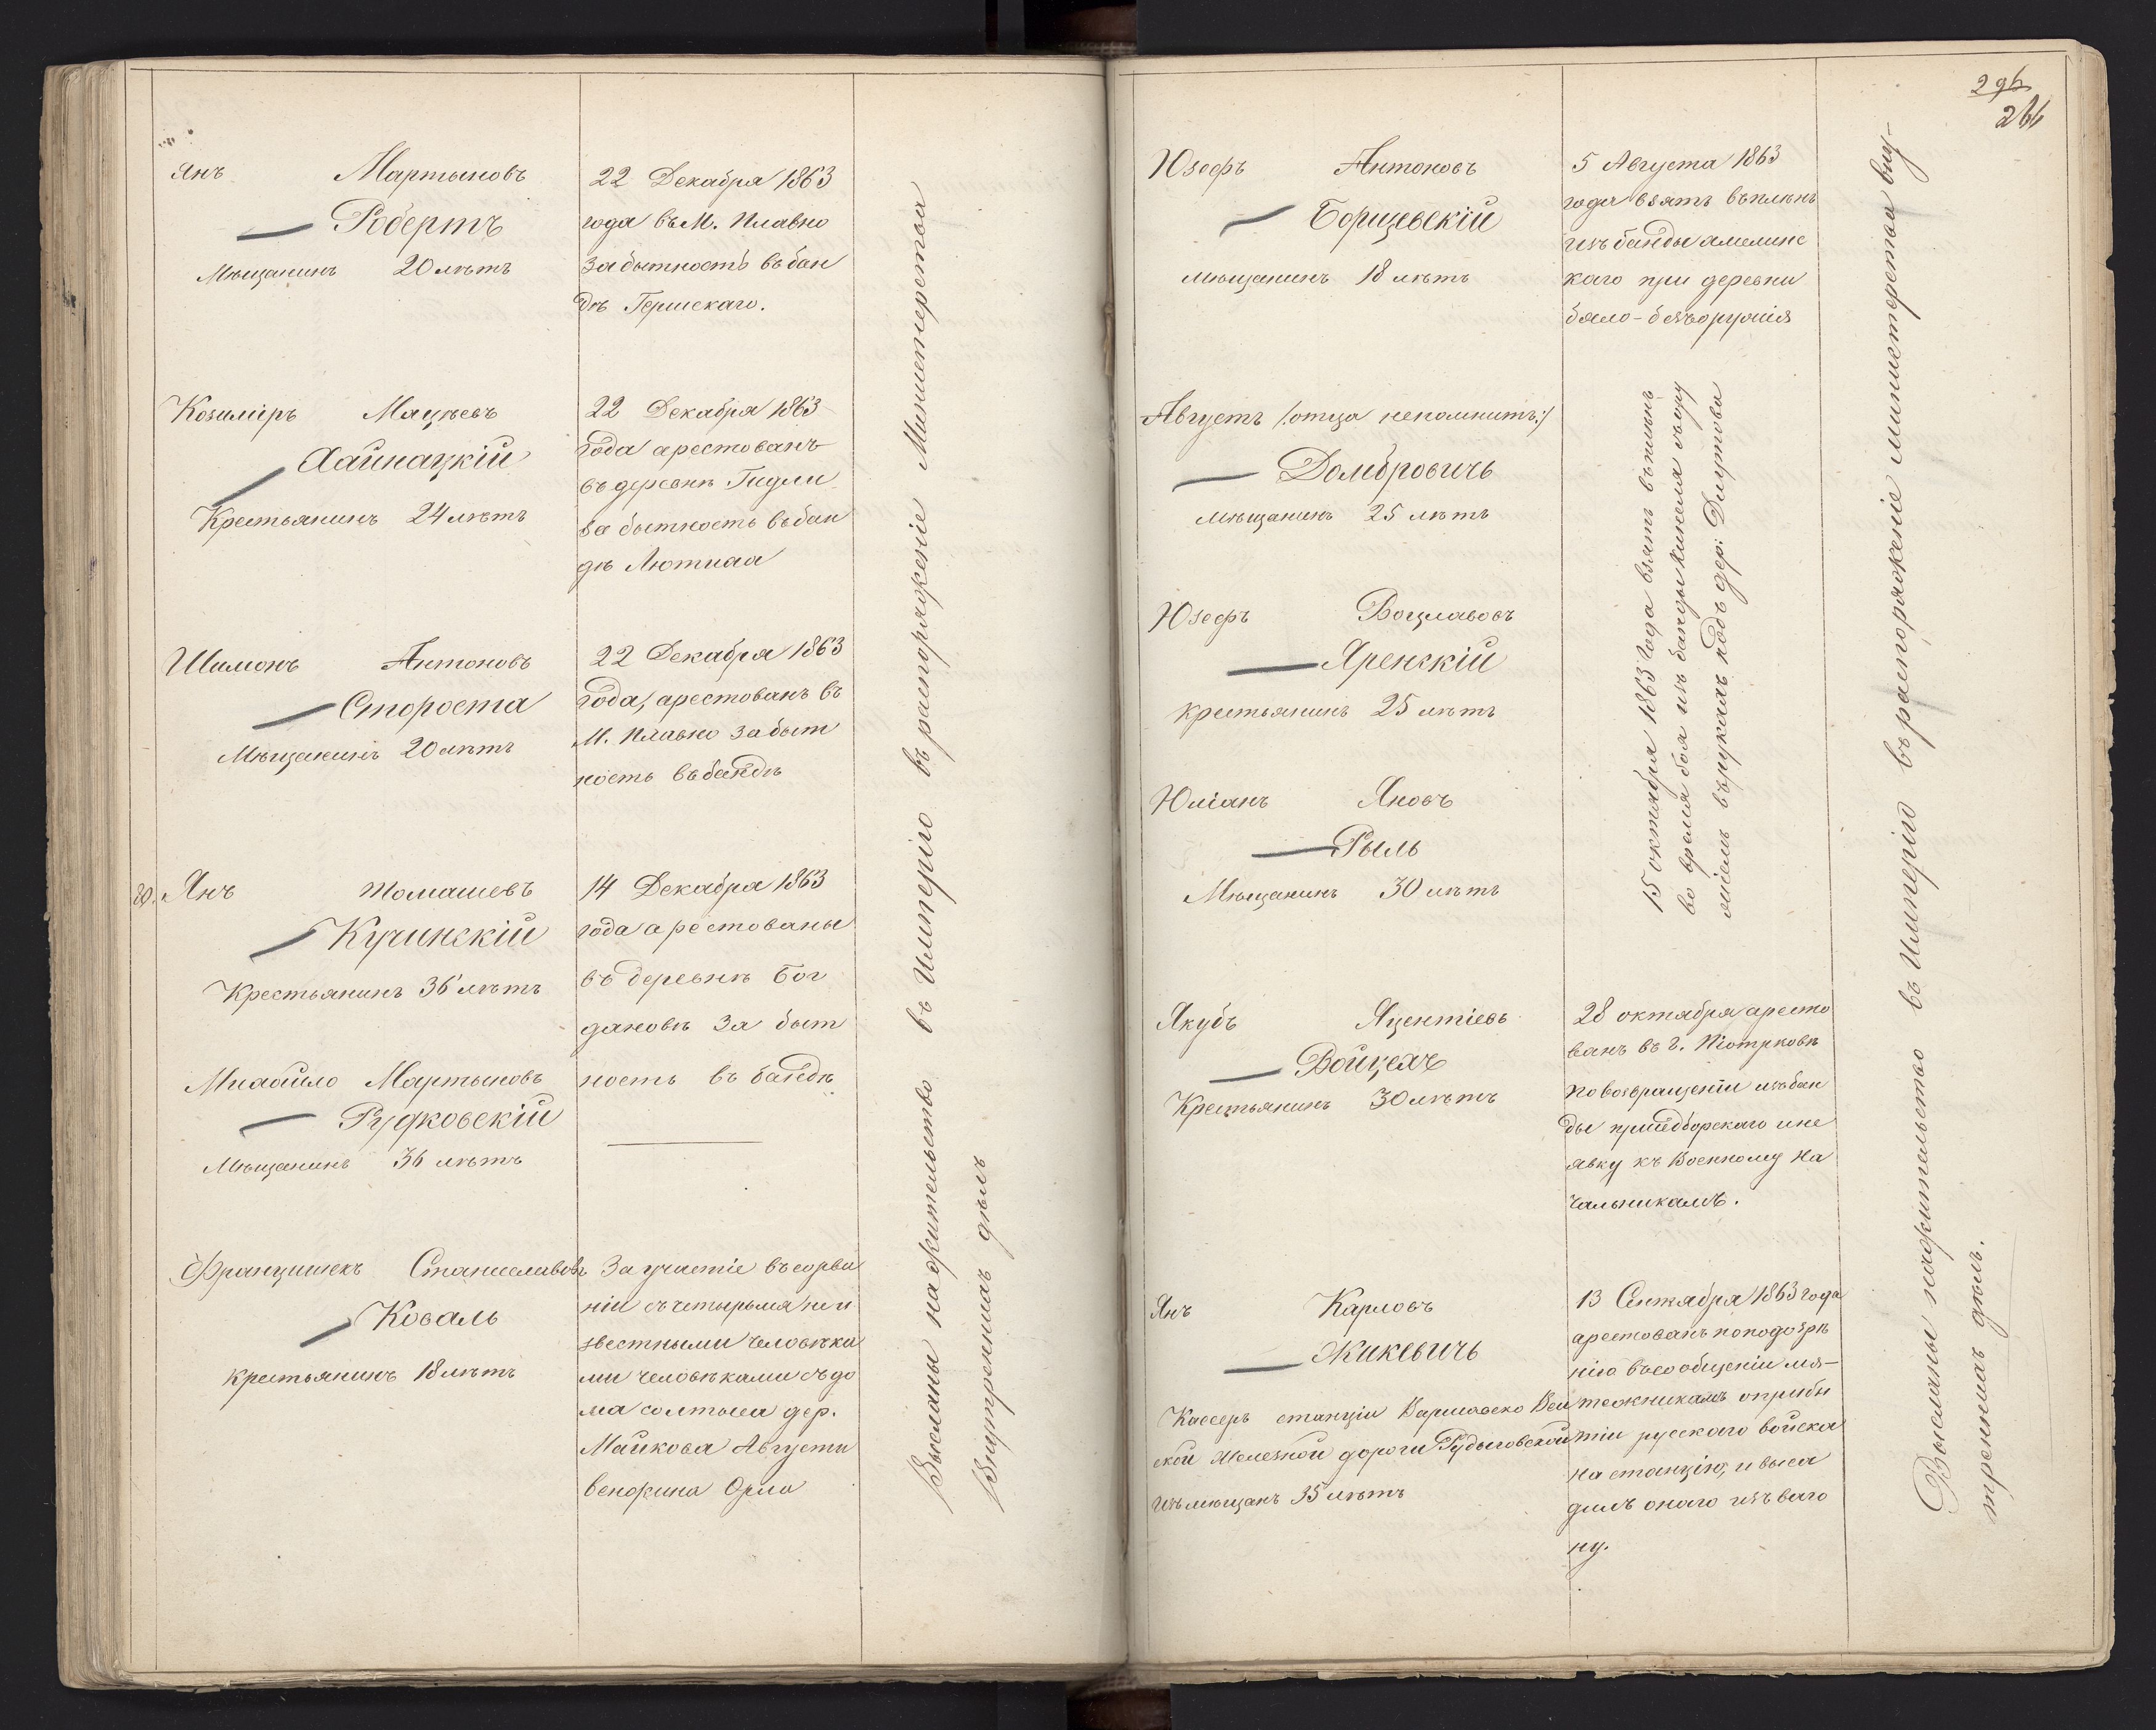 Янъ Мартыновъ
Робертъ
Мѣщанинъ 20 лѣтъ
22 Декабря 1863
года въ М. Плавно
за бытность въ бан
дѣ Гершскаго.
Козиміръ Мацѣевъ
Хайнацкій
Крестьянинъ 24 лѣтъ
22 Декабря 1863
года арестованъ
въ деревнѣ Гидли
за бытность въ бан
дѣ Лютиха
Шимонъ Антоновъ
Сторостa
Мѣщанинъ 20 лѣтъ
22 Декабря 1863
года, арестованъ въ
М. Плавно за быт
ность въ бандѣ
20. Янъ Томашевъ
Кучинскій
Крестьянинъ 36 лѣтъ
14 Декабря 1863
года арестованы
въ деревнѣ Бог
дановѣ за быт
ность въ бандѣ
Михайло Мартыновъ
Рудковскій
Мѣщанинъ 36 лѣтъ
Францишекъ Станиславовъ
Коваль
крестьянинъ 18 лѣтъ
За участіе въ сорва
ніи съ четырьмя неи
звестными человѣка
ми человѣками съ до
ма солтыса дер.
Майкова Августи
венжина Орла
Высланы на жительство въ Имперію въ распоряженіе Министерства
Внутреннихъ дѣлъ
296
266
Юзефъ Антоновъ
Борщевскій
мѣщанинъ 18 лѣтъ
5 Августа 1863
года взятъ въ плѣнъ
изъ банды амелинс
каго при деревни
бяло- безъ оружія
Августъ /:отца непомнитъ:/
Домбровичь
мѣщанинъ 25 лѣтъ
Юзефъ Воцлавовъ
Яренскій
крестьянинъ 25 лѣтъ
Юліанъ Яновъ
Рыль
Мѣщанинъ 30 лѣтъ
15 октября 1863 года взятъ въ плѣнъ
во время боя изъ банды Хмеля съ ору
жіемъ въ рукахъ подъ дер:
Якубъ Яцентіевъ
Войцехъ
Крестьянинъ 30 лѣтъ
28 октября аресто
ванъ въ г. Піотрковѣ
по возвращеніи изъ бан
ды пришедборскаго и не
явку къ Военному На
чальникамъ.
Янъ Карловъ
Жикевичь
Кассеръ станціи Варшавско Вен
ской Железной дороги Рудниковской
изъ мѣщанъ 35 лѣтъ
13 Сентября 1863 года
арестованъ по подозрѣ
нію въ сообщеніи мя-
тежникамъ о прибы
тіи русскаго войска
на станцію, и выса
дилъ онаго изъ ваго
ну.
Высланы на жительство въ Имперію въ распоряженіе министерства вну-
треннихъ дѣлъ.